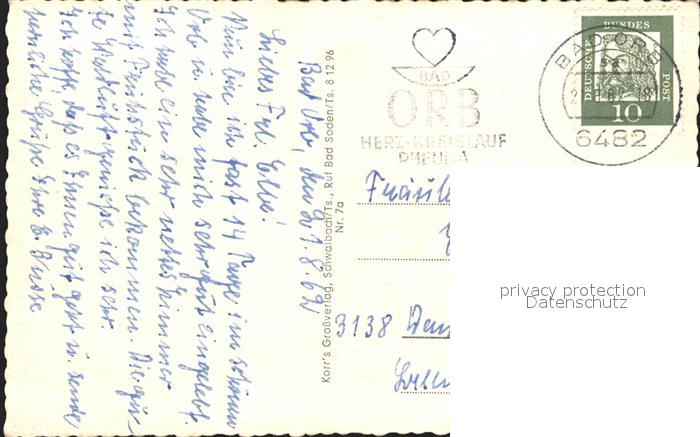 Bad Orb, den 21.8.62
Liebes Frl. Elli!
Nun bin ich fast 14 Tage im schönen
Orb u. habe mich sehr gut eingelebt.
Ich habe ein sehr nettes Zimmer
mit Frühstück bekommen. Die gu-
te Waldluft genieße ich sehr
Ich hoffe, daß es Ihnen gut geht u. sende
herzliche Grüße Ihre E. Busse
Korr's Großverlag, Schwalbach/Ts., Ruf Bad Soden/Ts. 8 12 96
Nr. 7a
BAD
ORB
HERZ-KREISLAUF
RHEUMA
BAD ORB
6482
DEUTSCHE
BUNDES
POST
10
Fräul
3138 Dan
privacy protection
Datenschutz